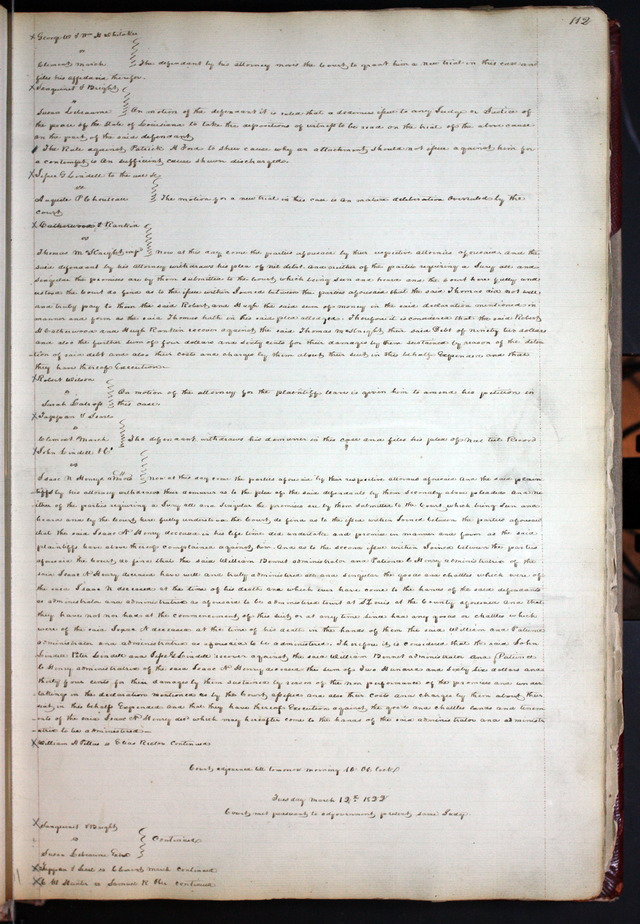 112
X George W & Wm H Whitaker
vs
Clement March The defendant by his attorney moves the Court to grant him a new trial in this case and
files his affidavit therefor.
X Vanquinel & Bright
vs
Susan Lebeaume On motion of the defendant it is ruled that a dedimus issue to any Judge or Justice of
the peace of the State of Louisiana to take the depositions of witness to be read on the trial of the above cause
on the part of the said defendant
The Rule against Patrick H Ford to shew cause why an attachment should not issue against him for
a contempt is on sufficient cause shewn discharged.
X Jesse G Lindell to the use &c
vs
Auguste P Chouteau The motion for a new trial in this case is on mature deliberation overruled by the
Court
X Catherwood & Rankin
vs
Thomas McKnight Now at this day come the parties aforesaid by their respective attornies aforesaid, and the
said defendant by his attorney withdraws his plea of Nil debet. And neither of the parties requiring a Jury all and
singular the premises are by them submitted to the Court, which being seen and heard and the Court here fully under
stands the Court do find as to the issue within Joined between the parties aforesaid that the said Thomas did not well
and truly pay to them the said Robert and Hugh the said sum of money in the said declaration mentioned in
manner and form as the said Thomas hath in this said plea alledged. Therefore it is considered that the said Robert
Catherwood and Hugh Rankin recover against the said Thomas McKnight, their said Debt of ninety two dollars
and also the further sum of four dollars and sixty cents for their damages by them sustained by reason of the deten
tion of said debt and also their costs and charges by them about their suit in this behalf Expended and that
they have thereof Execution.
X Robert Wilson
vs
Sarah On motion of the attorney for the plaintiff leave is given him to amend his petition in
this case
X Tappan & Searle
vs
Clement March The defendant withdraws his demurrer in this case and files his plea of Nul tiel Record
X John Lindell & Co
vs
Isaac N Henrys Now at this day come the parties aforesaid by their respective attornies aforesaid And the said plain
tiffs by his attorney withdraws their demurrer as to the plea of the said defendants by them secondly above pleaded. And nei
ther of the parties requiring a Jury all and singular the premises are by them submitted to the Court, which being seen and
heard and by the Court here fully understood the Court do find as to the issue within Joined between the parties aforesaid
that the said Isaac N Henry deceased in his life time did undertake and promise in manner and form as the said
plaintiffs have above thereof complained against him. And as to the second issue within Joined between the parties
aforesaid the Court do find that the said William Bennet administrator and Patience C Henry administratrix of the
said Isaac N Henry deceased have well and truly administered all and singular the goods and chattles which were of
the said Isaac N deceased at the time of his death and which ever have come to the hands of the said defendants
as administrator and administratrix as aforesaid to be administered to wit at St Louis at the County aforesaid And that
they have not nor had at the commencement of this suit or at any time since had any goods or chattles which
were of the said Isaac N deceased at the time of his death in the hands of them the said William and Patience
administrator and administratrix as aforesaid to be administered. Therefore it is considered that the said John
Lindell Peter Lindell and Jesse G Lindell recover against the said William Bennet administrator and Patience
C Henry administratrix of the said Isaac N Henry deceased this sum of Two Hundred and Sixty Six dollars and
thirty four cents for their damages by them sustained by reason of the non performance of the promises and under
takings in the declaration mentioned as by the Court assessed and also their costs and charges by them about their
suit in this behalf Expended and that they have thereof Execution against the goods and chattles lands and tenem
ents of the said Isaac N Henry decd which may hereafter come to the hands of the said administrator and administ
atrix to be administered
X William H Pettus vs Elias Rector Continued
Court adjourned till tomorrow morning 10 O'Clock
Tuesday March 12th 1822
Court met pursuant to adjournment present same Judge
X Vanquinel & Bright
vs Continued
Susan Lebeaume Extx
X Tappan & Searle vs Clement March continued
X vs Samuel R Ober continued